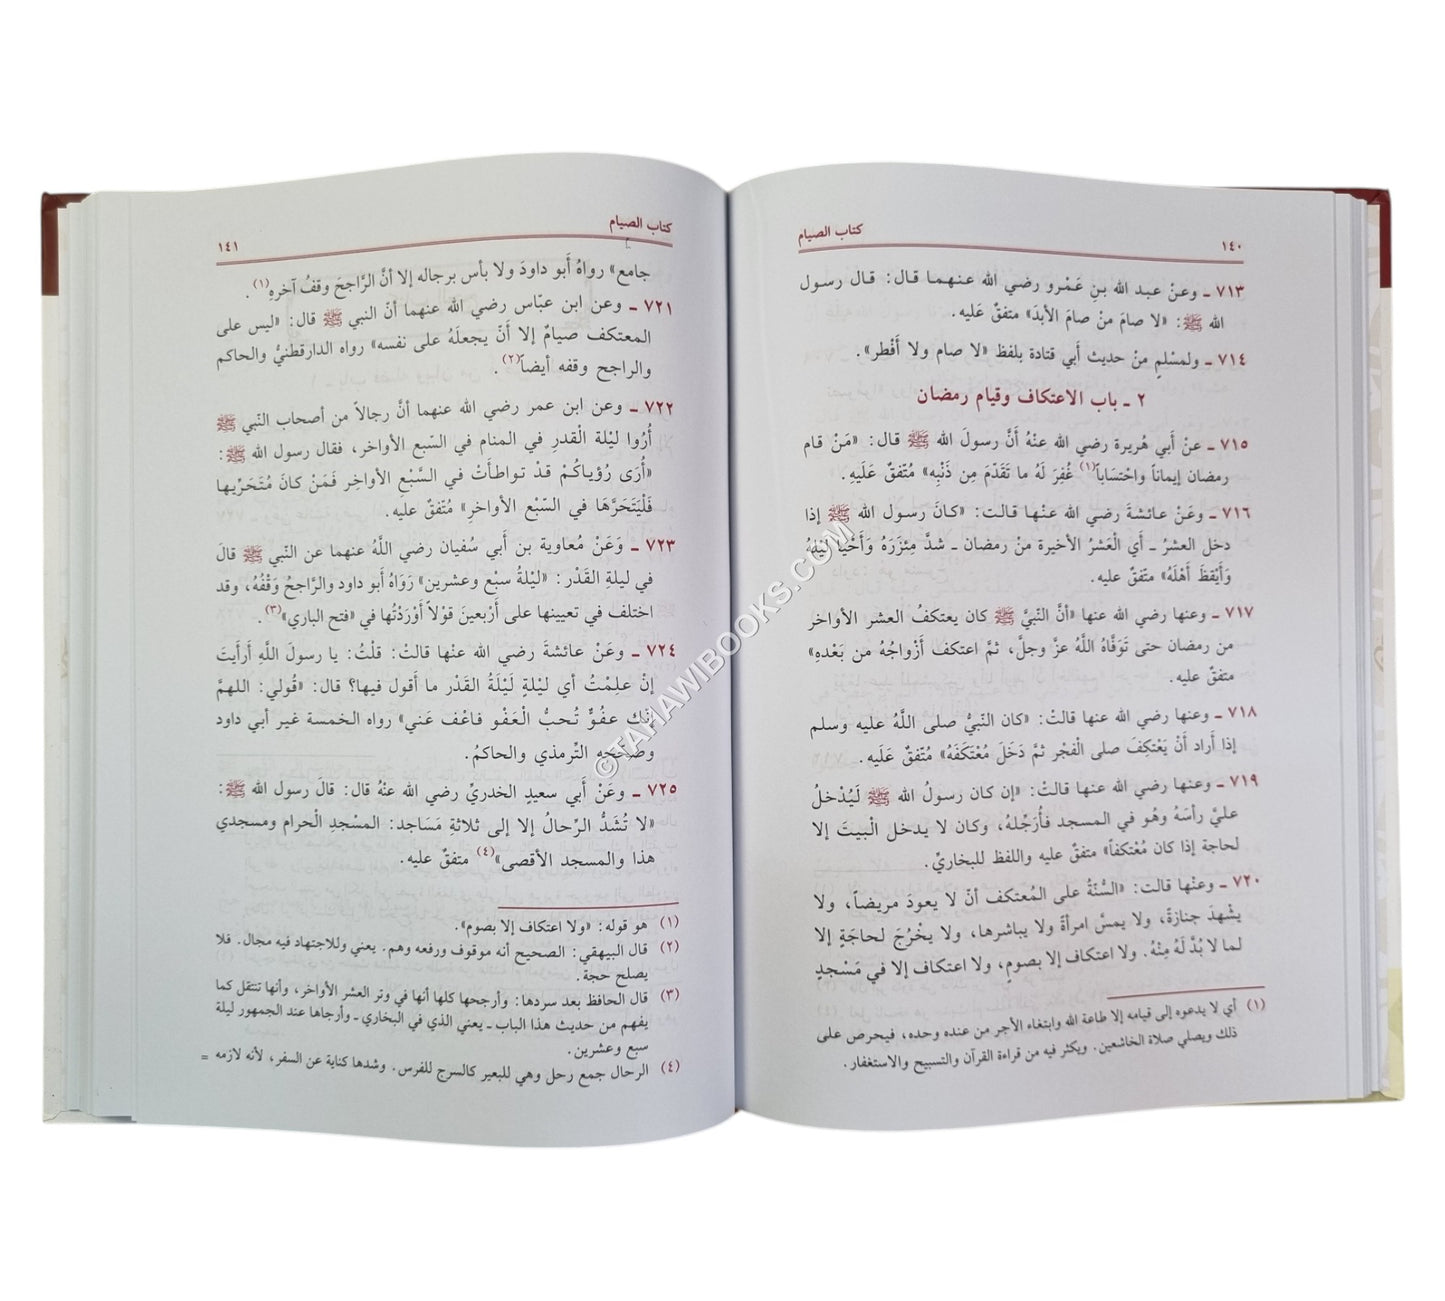 ١٤٠ كتاب الصيام
٧١٣ ـ وعنْ عبد الله بنِ عَمْرو رضي الله عنهما قال: قال رسول
الله ﷺ: «لا صامَ منْ صامَ الأبدَ» متفقٌ عَليه.
٧١٤ ـ ولمسْلمٍ منْ حديث أبي قتادة بلفظ «لا صام ولا أَفْطر».
٢ ـ باب الاعتكاف وقيام رمضان
٧١٥ ـ عنْ أَبي هُريرة رضي الله عنْهُ أَنَّ رسولَ الله ﷺ قال: «مَنْ قام
رمضان إيماناً واحْتساباً(١) غُفِرَ لَهُ ما تَقَدّمَ مِن ذَنْبه» مُتّفقٌ عَلَيهِ.
٧١٦ ـ وعَنْ عائشةَ رضي الله عنْها قالت: «كانَ رسول الله ﷺ إذا
دخل العشرُ ـ أَي الْعَشرُ الأخيرة منْ رمضان ـ شدَّ مِئزَرَهُ وَأَحْيا لَيْلهُ
وَأَيْقظَ أَهْلَهُ» متّفقٌ عليه.
٧١٧ ـ وعنها رضي الله عنها «أنَّ النّبيَّ ﷺ كان يعتكفُ العشر الأواخر
من رمضان حتى تَوَفَّاهُ اللَّهُ عزَّ وجلَّ، ثمَّ اعتكف أَزْواجُهُ من بَعْدهِ»
متفقٌ عليه.
٧١٨ ـ وعنها رضي الله عنها قالتْ: «كان النّبيُّ صلى اللَّهُ عليه وسلم
إذا أَراد أَنْ يَعْتكِفَ صلى الْفَجْر ثمَّ دَخَلَ مُعْتكَفَهُ» مُتّفقٌ عَلَيه.
٧١٩ ـ وعنها رضي الله عنها قالتْ: «إن كان رسولُ الله ﷺ لَيُدْخلُ
عليَّ رأسَهُ وهُو في المسجد فأُرَجّلهُ، وكان لا يدخل الْبيتَ إلا
لحاجة إذا كان مُعْتكفاً» متفقٌ عليه واللفظ للبخاريِّ.
٧٢٠ ـ وعنْها قالت: «السُّنّةُ على المُعتكف أنْ لا يعودَ مريضاً، ولا
يشْهدَ جنازةً، ولا يمسَّ امرأةً ولا يباشرها، ولا يخْرُجَ لحاجَةٍ إلا
لما لا بُدَّ لَهُ مِنْهُ. ولا اعتكاف إلا بصومٍ، ولا اعتكاف إلا في مَسْجدٍ
(١) أي لا يدعوه إلى قيامه إلا طاعة الله وابتغاء الأجر من عنده وحده، فيحرص على
ذلك ويصلي صلاة الخاشعين. ويكثر فيه من قراءة القرآن والتسبيح والاستغفار.
كتاب الصيام ١٤١
جامع» رواهُ أَبو داودَ ولا بأس برجاله إلا أنَّ الرَّاجحَ وقفُ آخرهِ(١).
٧٢١ ـ وعن ابن عبّاس رضي الله عنهما أنّ النبي ﷺ قال: «ليس على
المعتكف صيامٌ إلا أَنّ يجعلَهُ على نفسه» رواه الدارقطنيُّ والحاكم
والراجح وقفه أيضاً(٢).
٧٢٢ ـ وعن ابن عمر رضي الله عنهما أنَّ رجالاً من أصحاب النّبي ﷺ
أُرُوا ليْلة الْقدرِ في المنام في السّبع الأواخر، فقال رسول الله ﷺ:
«أُرَى رُؤْياكُمْ قدْ تواطأَتْ في السَّبْعِ الأواخِر فَمَنْ كانَ مُتَحَرّيها
فَلْيَتَحَرَّهَا في السّبْع الأواخرِ» مُتّفقٌ عليه.
٧٢٣ ـ وَعَنْ مُعاوية بن أَبي سُفيان رضي اللَّهُ عنهما عن النّبي ﷺ قالَ
في ليلةِ القَدْر: «ليْلةُ سبْع وعشرين» رَوَاهُ أَبو داود والرَّاجحُ وَقْفُهُ، وقد
اختلف في تعيينها على أَرْبعينَ قوْلاً أَوْرَدْتُها في «فتح الباري»(٣).
٧٢٤ ـ وعَنْ عائشةَ رضي الله عنْها قالتْ: قلْتُ: يا رسولَ اللَّهِ أَرأَيتَ
إنْ علِمْتُ أي ليْلةٍ لَيْلَةُ القَدْر ما أَقول فيها؟ قال: «قُولي: اللهمَّ
إنّك عفُوٌّ تُحبُّ الْعَفْو فاعْف عَني» رواه الخمسة غير أَبي داود
وصححه التِّرمذي والحاكمُ.
٧٢٥ ـ وعَنْ أَبي سعيدٍ الخدريِّ رضي الله عنْهُ قال: قالَ رسول الله ﷺ:
«لا تُشَدُّ الرِّحالُ إلا إلى ثلاثةِ مَسَاجد: المسْجدِ الْحرام ومسجدي
هذا والمسجد الأقصى»(٤) متفقٌ عليه.
(١) هو قوله: «ولا اعتكاف إلا بصوم».
(٢) قال البيهقي: الصحيح أنه موقوف ورفعه وهم. يعني وللاجتهاد فيه مجال. فلا
يصلح حجة.
(٣) قال الحافظ بعد سردها: وأرجحها كلها أنها في وتر العشر الأواخر، وأنها تنتقل كما
يفهم من حديث هذا الباب ـ يعني الذي في البخاري ـ وأرجاها عند الجمهور ليلة
سبع وعشرين.
(٤) الرحال جمع رحل وهي للبعير كالسرج للفرس. وشدها كناية عن السفر، لأنه لازمه =
©TAHAWIBOOKS.COM